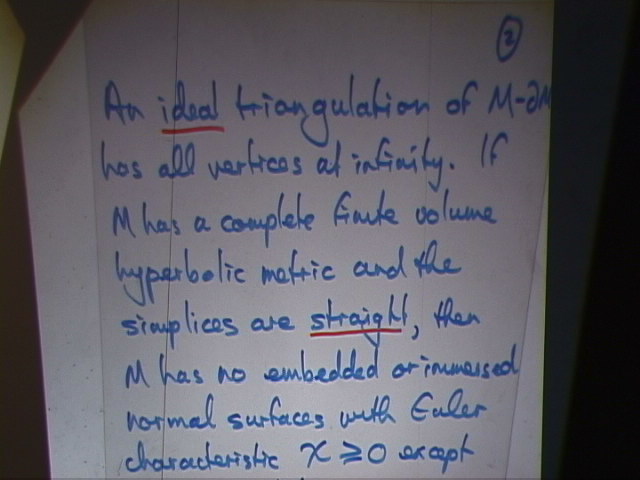 2
An ideal triangulation of M-∂M
has all vertices at infinity. If
M has a complete finite volume
hyperbolic metric and the
simplices are straight, then
M has no embedded or immersed
normal surfaces with Euler
characteristic χ ≥ 0 except